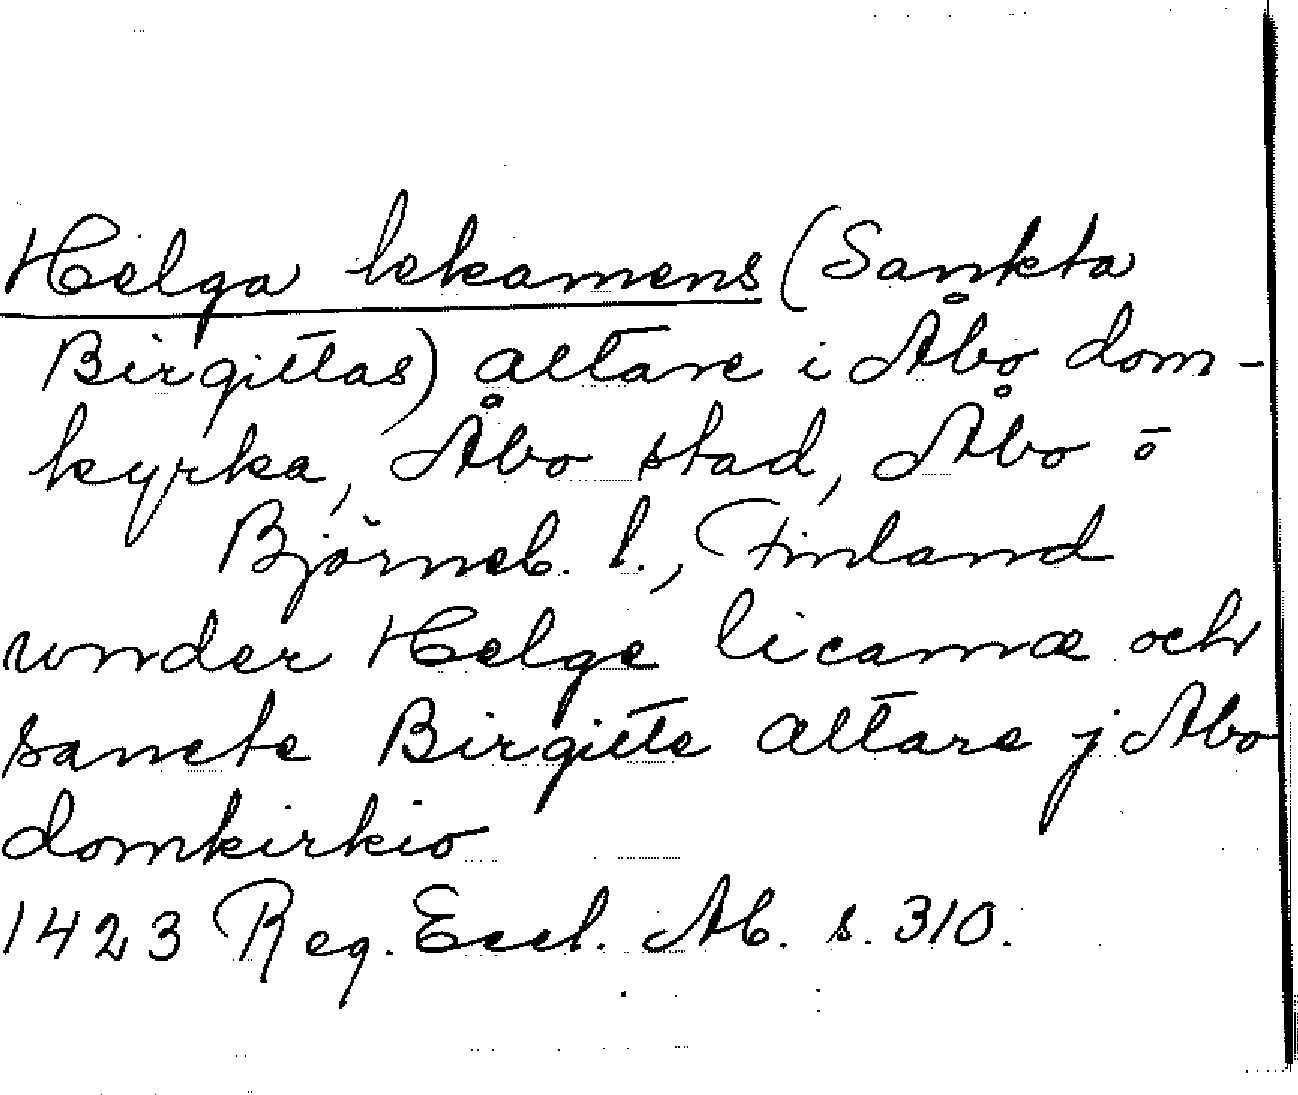 Helga lekamens (Sankta
Birgittas) altare i Åbo dom-
kyrka, Åbo stad, Åbo o
Björneb. l., Finland
vnder Helge licamæ och
sancte Birgitte altare j Abo
domkirkio
1423 Reg. Eccl. Ab. s. 310.